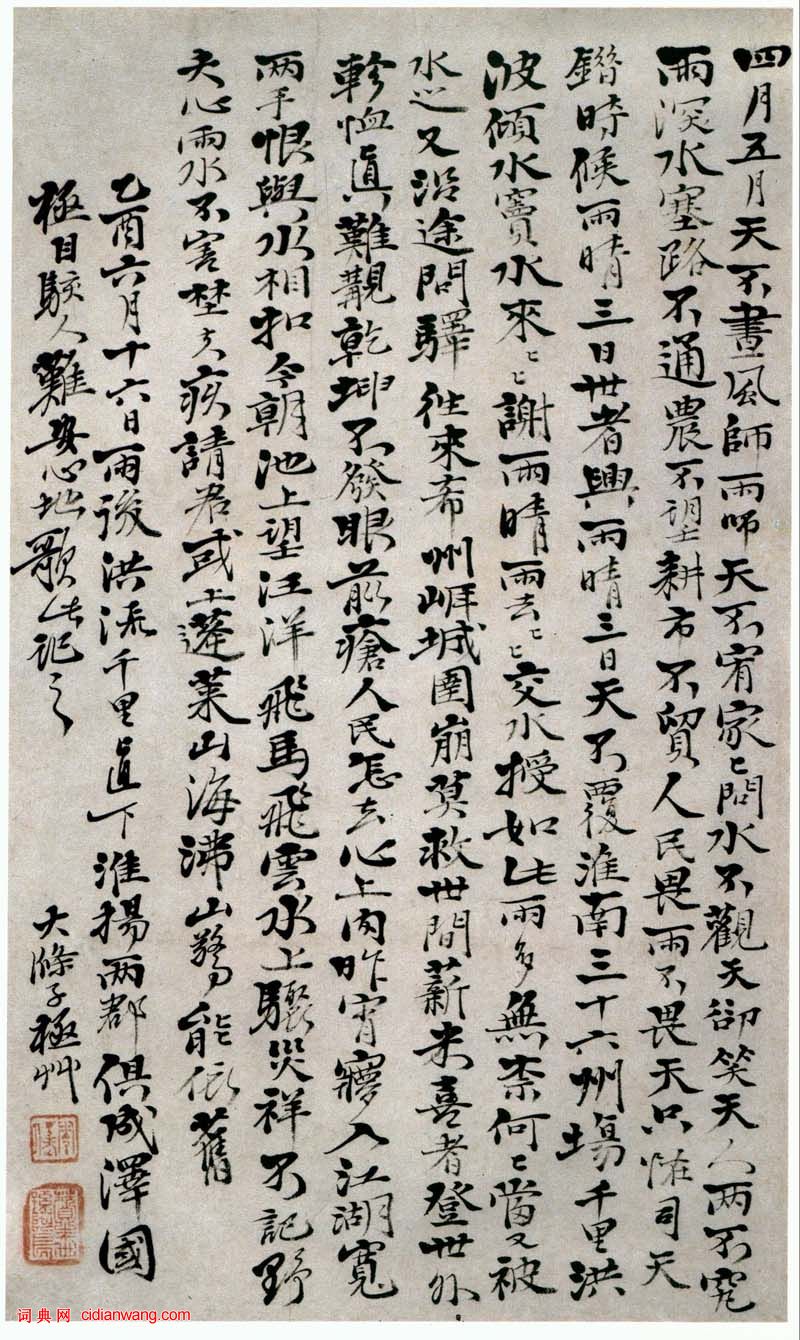 四月五月天不晝風師雨師天不宥家〻問水不觀天卻笑天人兩不究
雨深水塞路不通農不望耕市不貿人民畏雨不畏天只恠司天
錯時候雨晴三日世者興雨晴三日天不覆淮南三十六州場千里洪
波傾水竇水來〻謝雨晴雨去〻交水授如此雨多無柰何〻當又被
水逃又沿途問驛往來希州崕城圍崩莫救世間薪米喜者登世外
軫恤真難覯乾坤不發眼前瘡人民怎去心上肉昨宵寢入江湖寬
兩手恨與水相扣今朝池上望汪洋飛馬飛雲水上驟災祥不記野
夫心雨水不害埜夫疚請君或上蓬萊山海沸山驚能依舊
乙酉六月十六日雨後洪流千里直下淮揚兩郡俱成澤國
極目駭人難安心地歌此記之
大滌子極艸
词典网 cidianwang.com